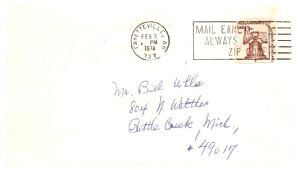 FAYETTEVILLE, AR
FEB 3
PM
1978
727
MAIL EARLY
ALWAYS
ZIP
13c
Mr. Bill Wells
804 N Wattles
Battle Creek, Mich,
49017